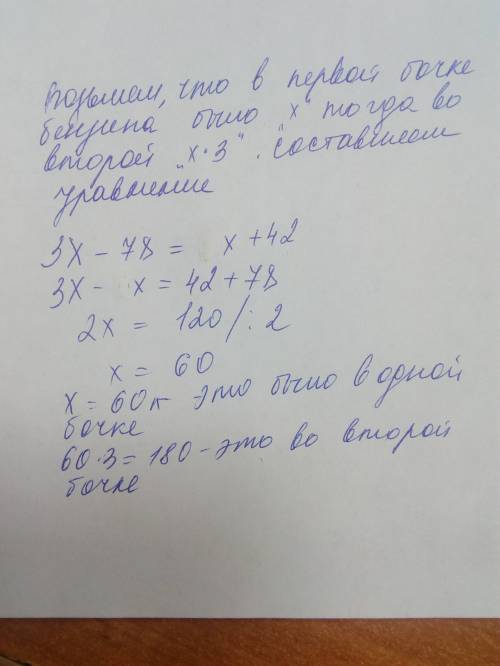 Возьмем, что в первой бочке
бензина было "х" тогда во
второй "х·3". Составляем
уравнение
3х - 78 = х + 42
3х - х = 42 + 78
2х = 120 /: 2
х = 60
х = 60л это было в одной
бочке
60·3 = 180 - это во второй
бочке